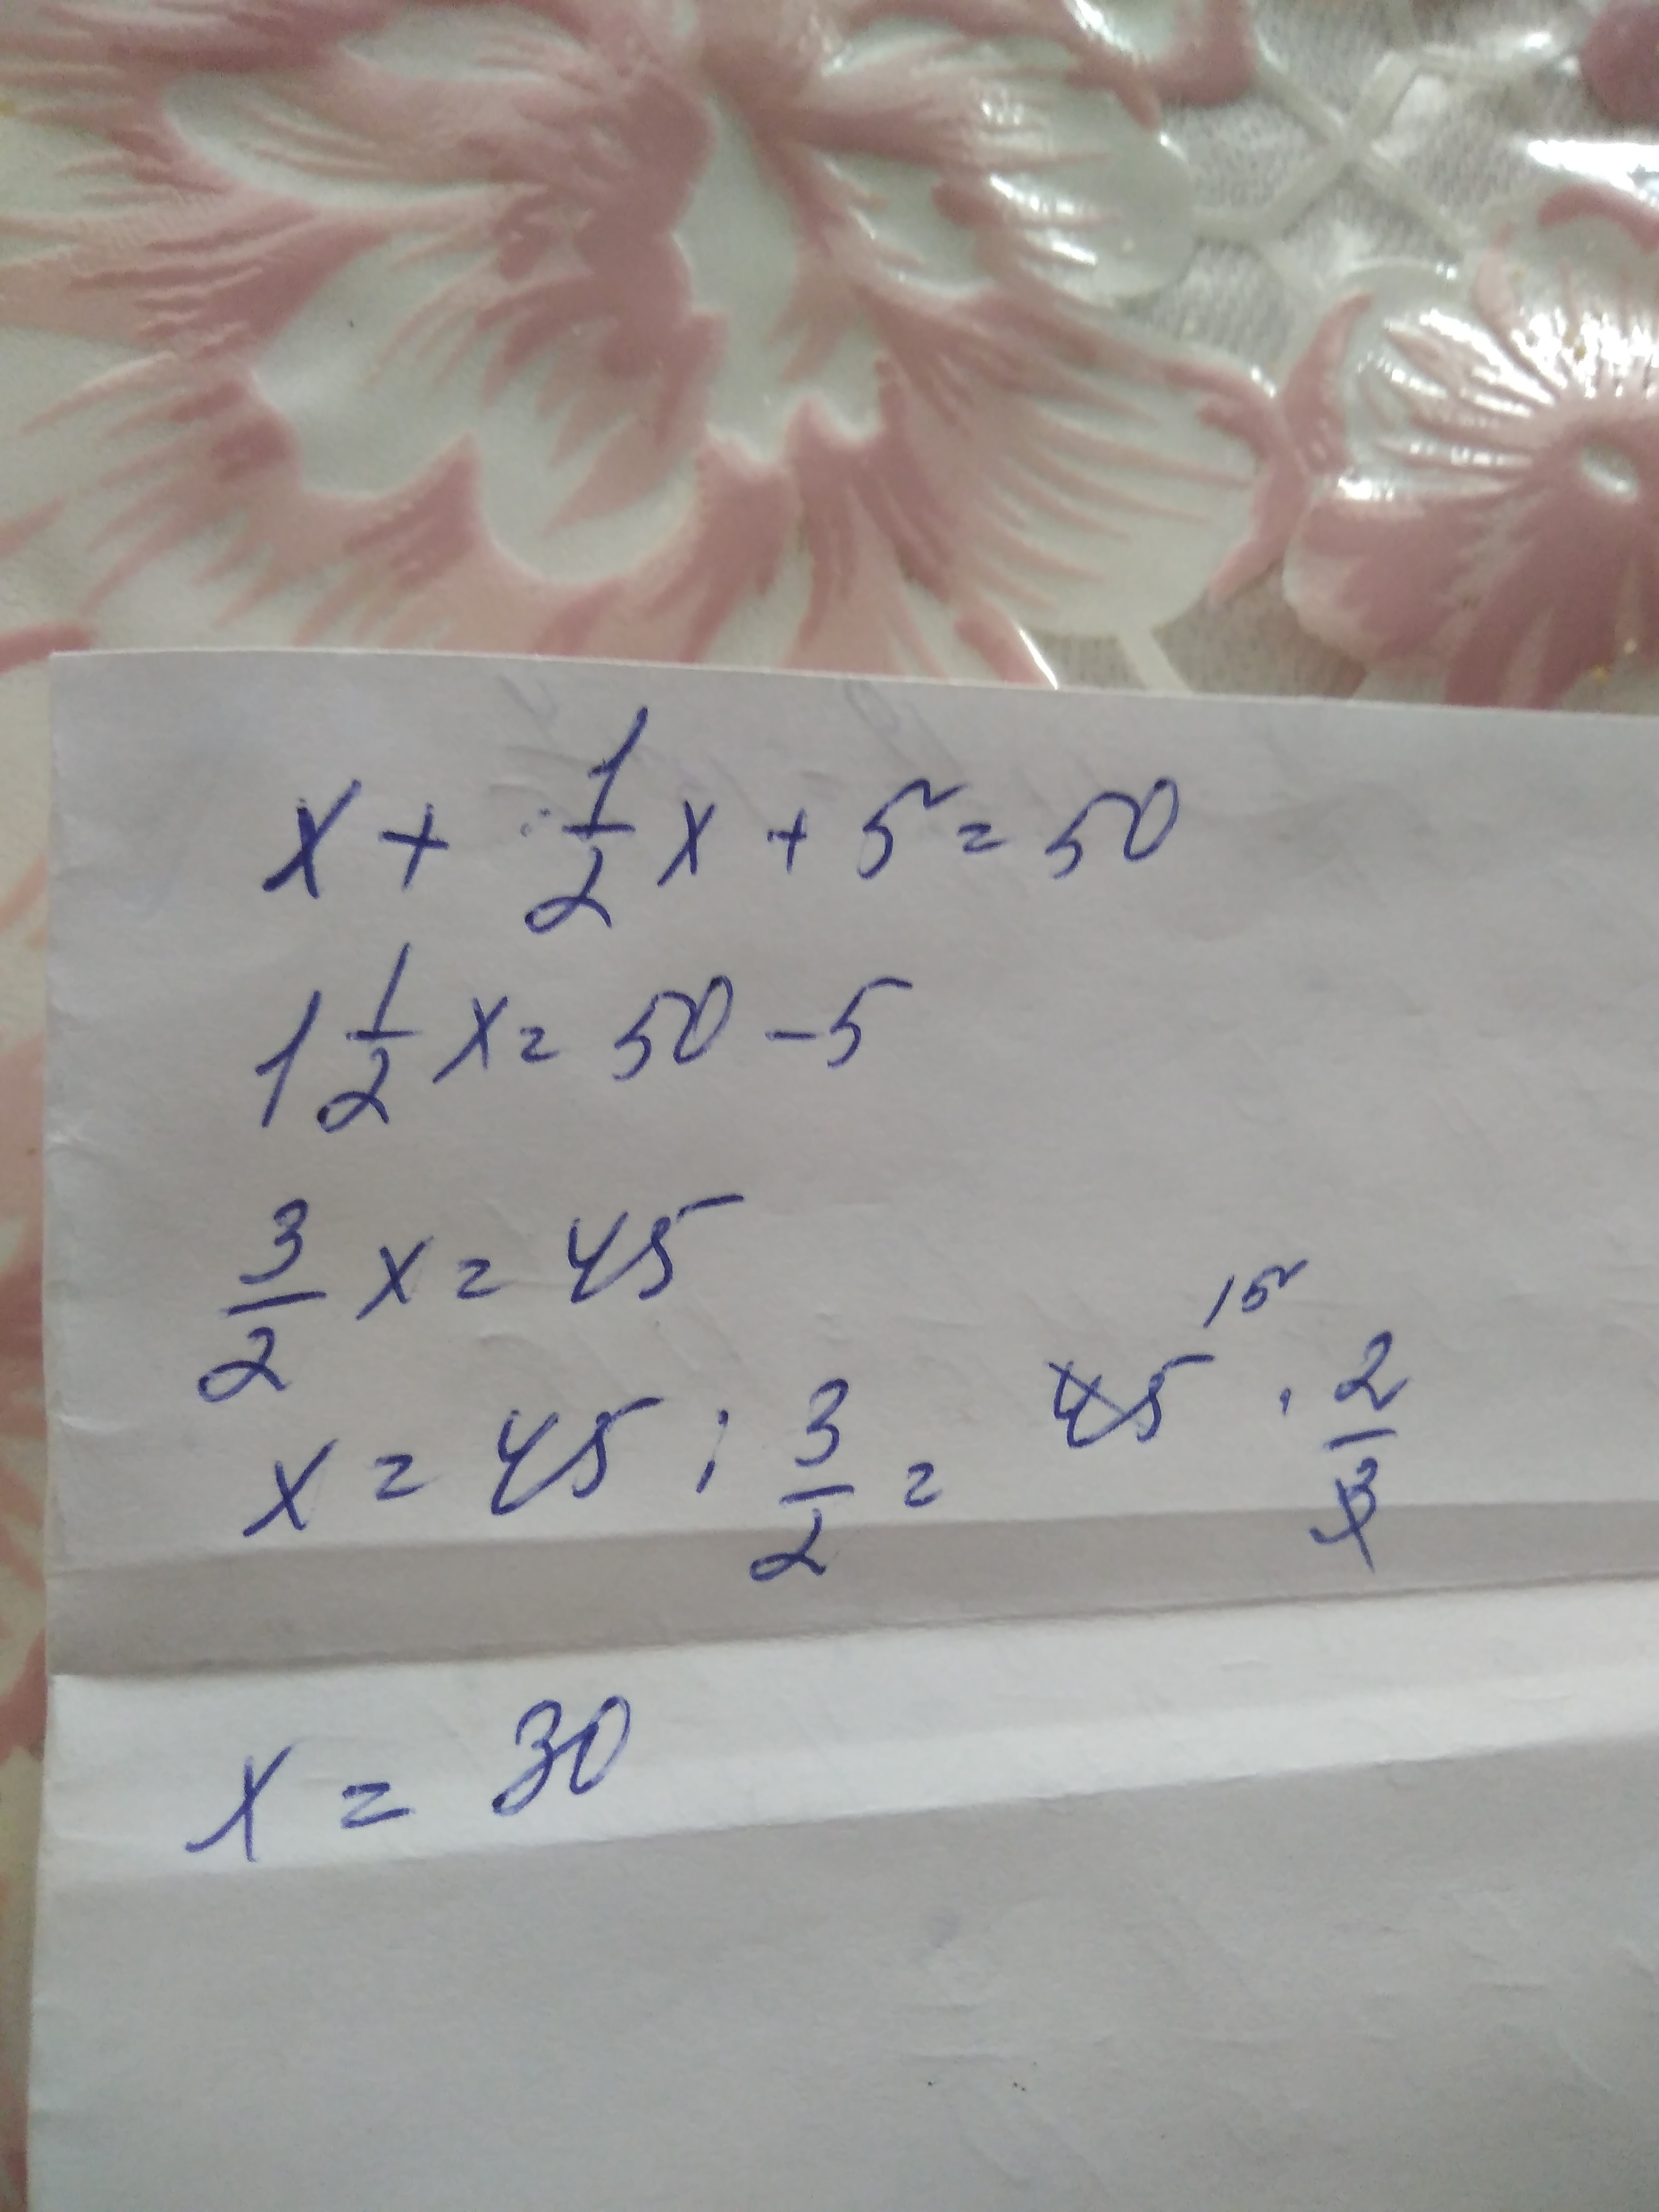 x + 1/2 x + 5 = 50
1 1/2 x = 50 - 5
3/2 x = 45
x = 45 : 3/2 = 45 15 · 2/3
x = 30